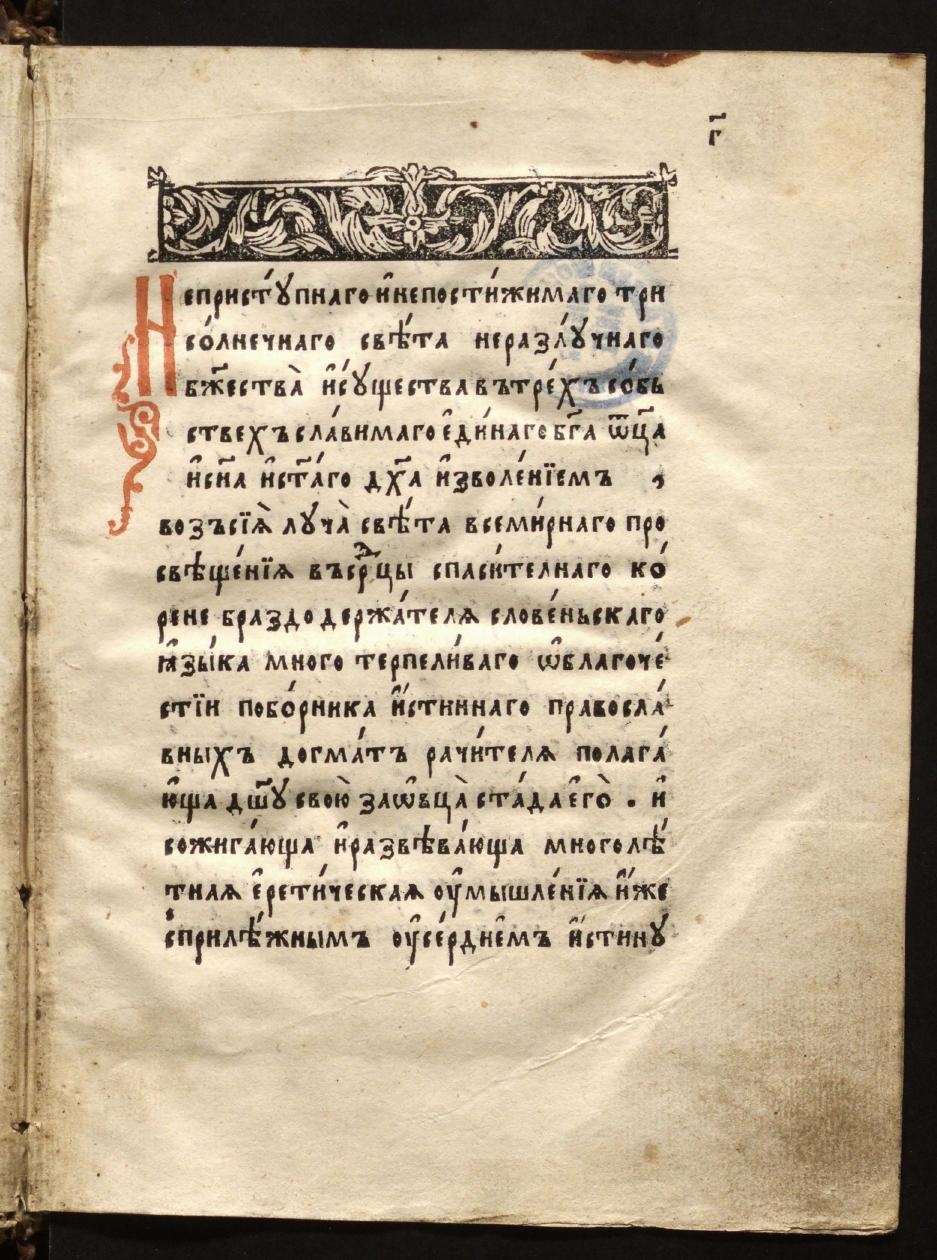 г҃
Непристꙋ́пнаго и҆непости́жимаго три
со́лнечнаго свѣ́та неразлꙋ́чнаго
бж҃ества̀ и҆сꙋщества вътре́хъ со́бь
ствехъ сла́вимаго є҆ди́наго бг҃а ѿц҃а
и҆сн҃а и҆ст҃а́го дх҃а и҆зволе́нїемъ ,
возъсїѧ̀ лꙋча̀ свѣ́та всеми́рнаго про
свѣще́нїѧ въсрⷣцы спаси́телнаго ко́
рене браздодержа́телѧ слове́ньскаго
ꙗ҆зы́ка много терпели́ваго ѡ҆благоче́
стїи побо́рника и҆́стиннаго правосла́
вныхъ догма́тъ рачи́телѧ полага́
юща дш҃ꙋ свою̀ заѡ҆вца̀ ста́да є҆го̀ . и҆
сожига́юща и҆развѣва́юща многолѣ́
тнаѧ є҆рети́ческаѧ оу҆мышле́нїѧ и҆́же
сприлѣ́жнымъ оу҆се́рдиемъ и҆́стинꙋ